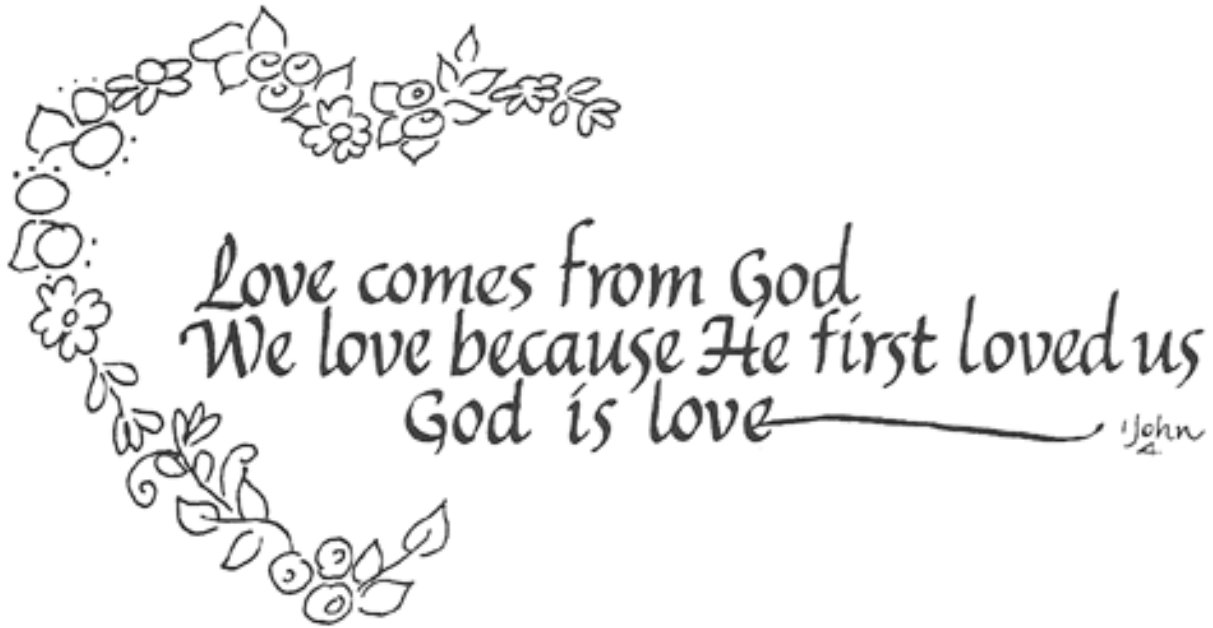 Love comes from God
We love because He first loved us
God is love
1 John
4